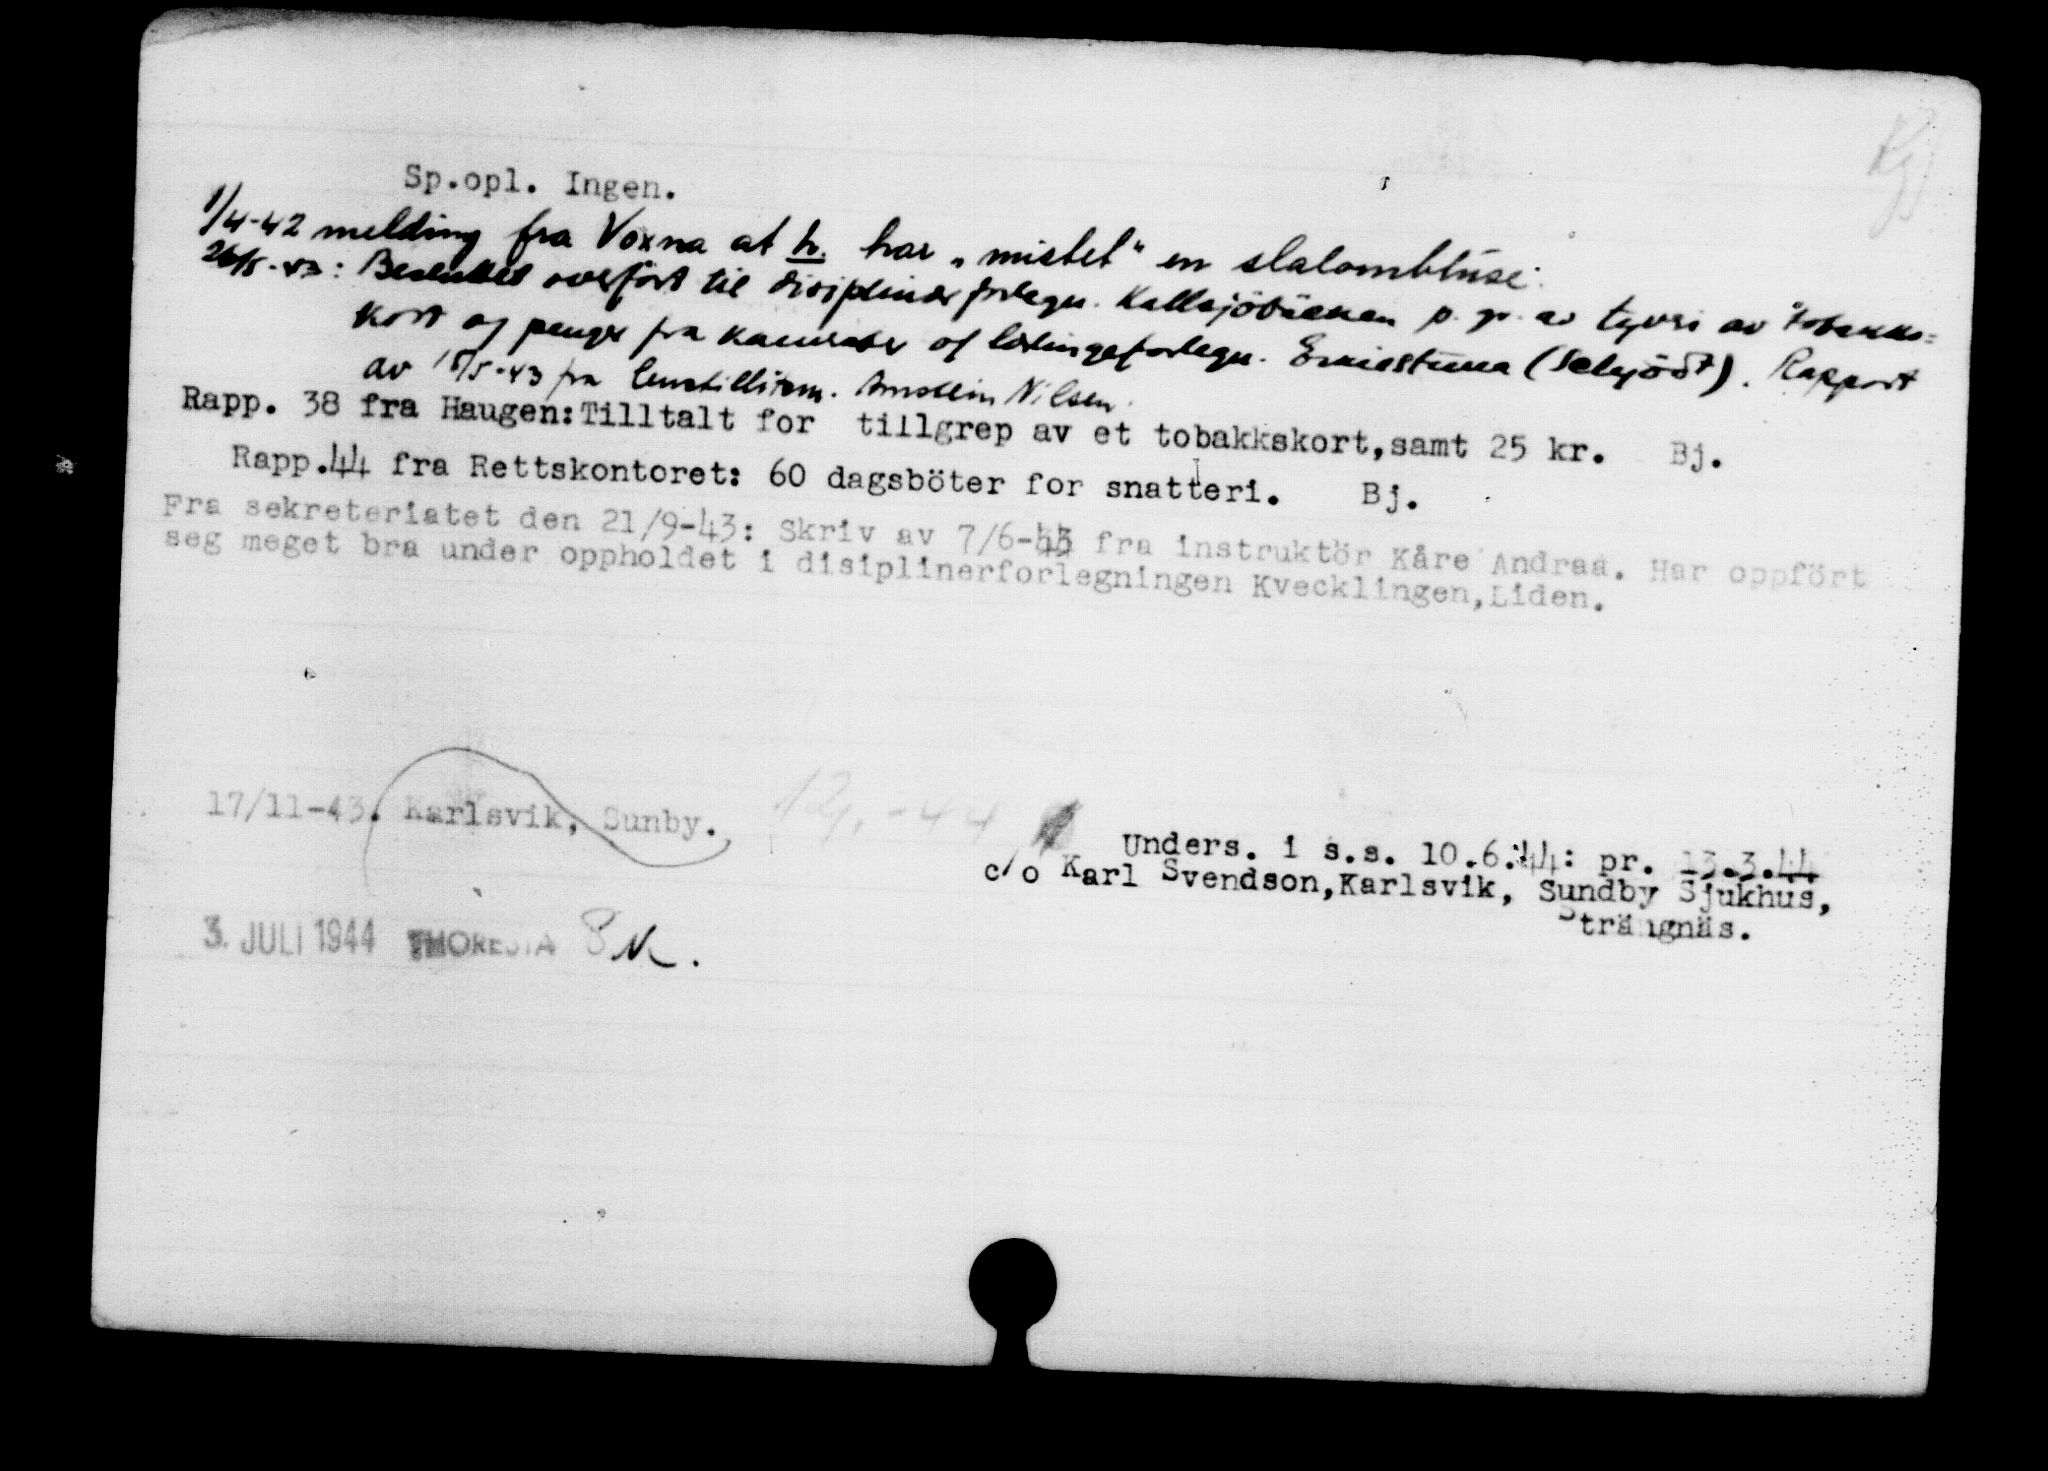 Sp.opl. Ingen.
1/4-42 melding fra Voxna at h. har „mistet“ en slalombluse.
26/5-43: Besluttet overført til disiplinær forlegn. Kallsjöbäcken p. gr. av tyveri av tobakks=
kort og penger fra kamerater af lærlingeforlegn. Eskilstuna (Selsjödt). Rapport
av 15/5-43 fra Arnstein Nilsen.
Rapp. 38 fra Haugen:Tilltalt for tillgrep av et tobakkskort,samt 25 kr. Bj.
Rapp.44 fra Rettskontoret: 60 dagsböter for snatteri. Bj.
Fra sekreteriatet den 21/9-43: Skriv av 7/6-43 fra instruktör Kåre Andraa. Har oppfört
seg meget bra under oppholdet i disiplinerforlegningen Kvecklingen,Liden.
17/11-43. Karlsvik, Sunby.
-44
Unders. i s.s. 10.6.44: pr. 13.3.44
c/o Karl Svendson,Karlsvik, Sundby Sjukhus,
Strängnäs.
3. JULI 1944 THORESTA